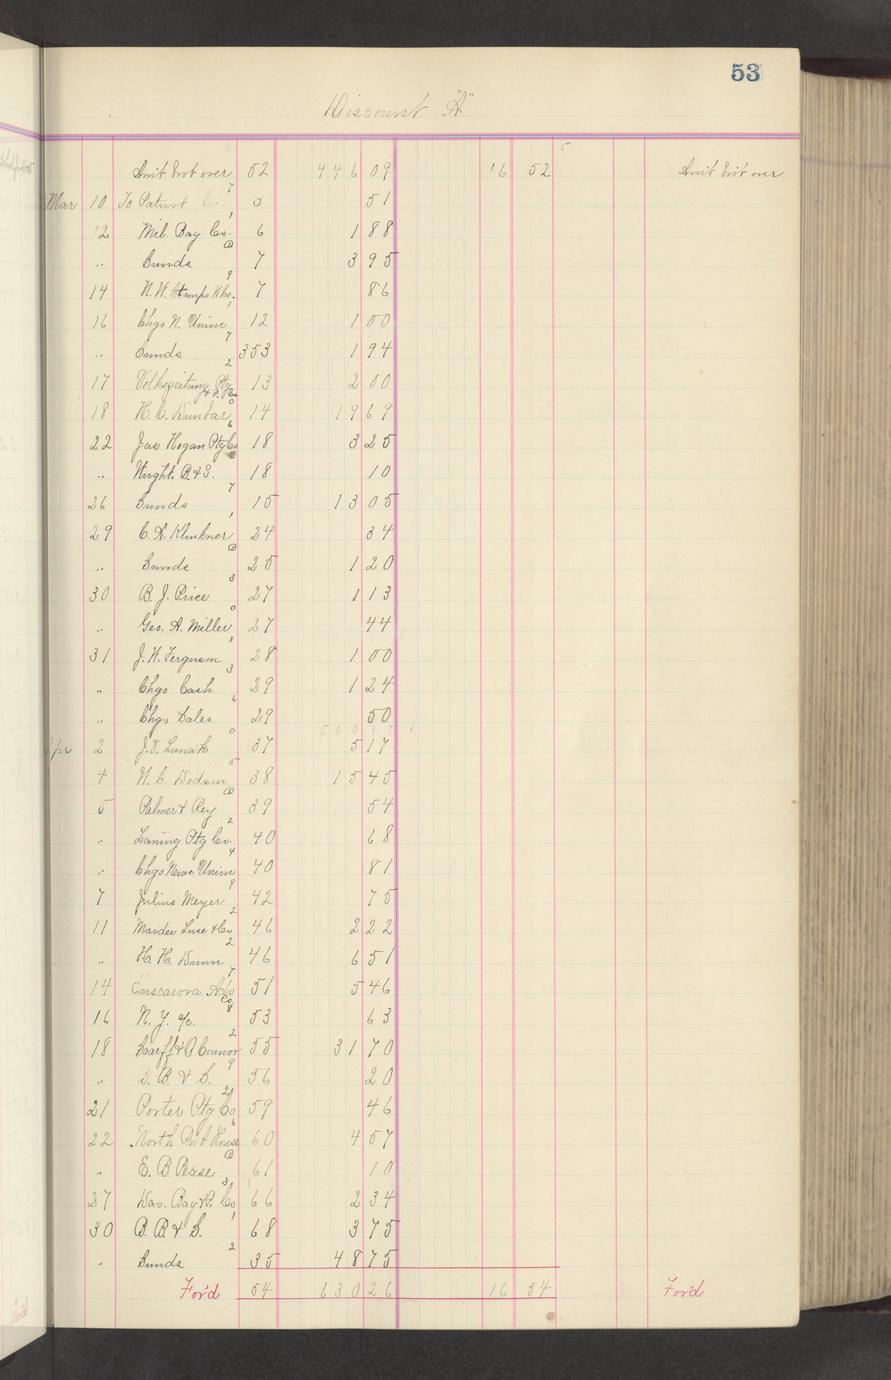 53
Discount "A"
Amt brot over 52 446 09 16 52 Amt brot over
Mar 10 To Patent Co. 5 51
12 Mil. Bag Co. 6 1 88
" Sunds 7 3 95
14 N.W. Stamp Wks. 7 86
16 Chgo N. Union 12 1 00
" Sunds 353 1 94
17 Volkszeitung Ptg 13 2 00
18 H.C. Dunbar 14 19 69
22 Jas Hogan Ptg Co 18 3 25
" Wright. B. & S. 18 10
26 Sunds 15 13 05
29 C.A. Klinkner 24 34
" Sunds 25 1 20
30 B.J. Price 27 1 13
" Geo. A. Miller 27 44
31 J.H. Ferguson 28 1 00
" Chgo Cash 29 1 24
" Chgo Sales 29 50
Apr 2 37 5 17
4 W.C. Dodson 38 15 45
5 Palmer & Rey 39 54
" Laning Ptg Co. 40 68
" Chgo News Union 40 81
7 Julius Meyer 42 75
11 Marder Luse & Co 46 2 22
" H.H. Dunn 46 6 51
14 51 5 46
16 N.Y. a/c. 53 63
18 & O'Connor 55 31 70
" B. & S. 56 20
21 Porter Ptg Co 59 46
22 North Pub House 60 4 57
" E.B. Pease 61 10
27 Dav. Bag & P. Co 66 2 34
30 B.B. & S. 68 3 75
" Sunds 35 48 75
For'd 54 630 26 16 54 For'd